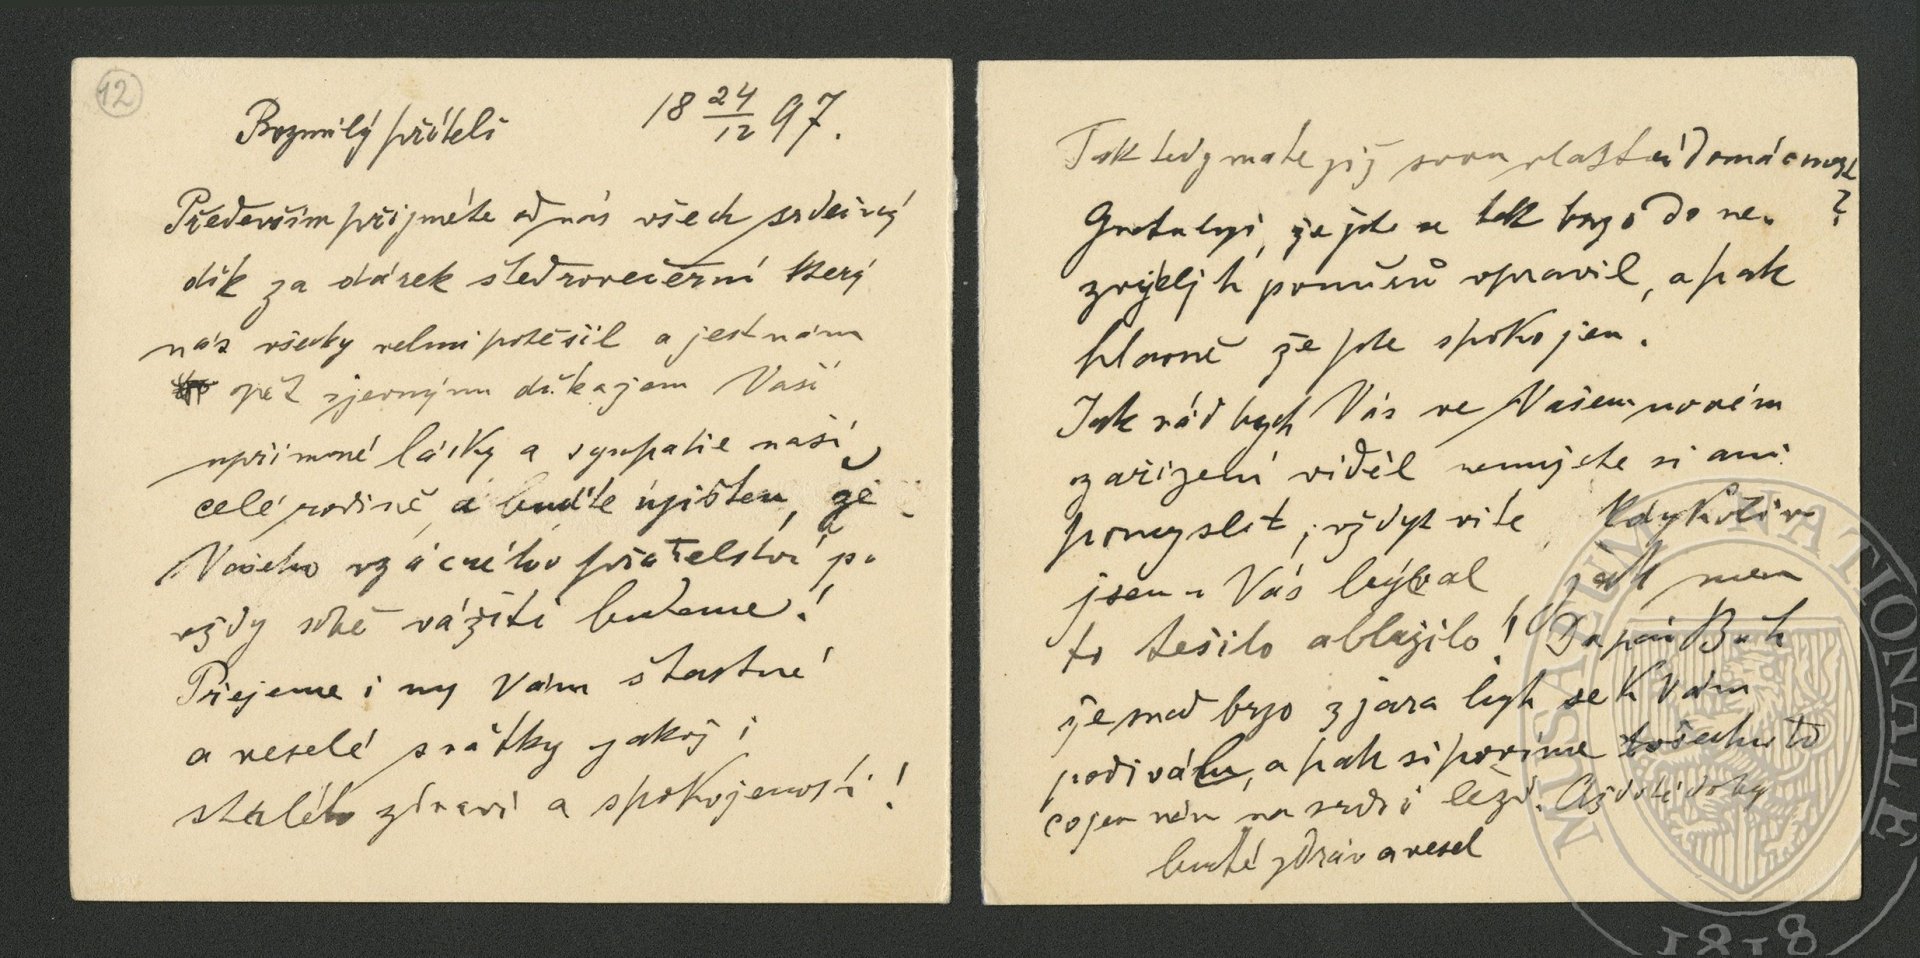 12
18 24/12 97.
Rozmilý příteli
Především přijměte od nás všech srdečný
dík za dárek štedrovečerní který
nás všecky velmi potěšil a jest nám
opět zjevným důkazem Vaší
upřímné lásky a sympatie naší
celé rodině, a buďte ujištěn, že
Vašeho vzácného přátelství si
vždy sobě vážiti budeme!
Přejeme i my Vám šťastné
a veselé svátky jakož i
stálého zdraví a spokojenosti!
Tak tedy mate již svou vlastní domácnost
?
Gratuluji, že jste se tak brzo do ne-
zvyklých poměrů vpravil, a pak
hlavně že jste spokojen.
Jak rád bych Vás ve Vašem novém
zařízení viděl nemujete si ani
pomyslet; vždyt víte kdykoliv
jsem u Vás býval jak mne
to těšilo a blažilo! Da pán Bůh
že snad brzo z jara bych se k Vám
podíval, a pak si povíme všechno to
co jen nám na srdci leží. Až do té doby
buďte zdráv a vesel
MUSAEUM NATIONALE
1818